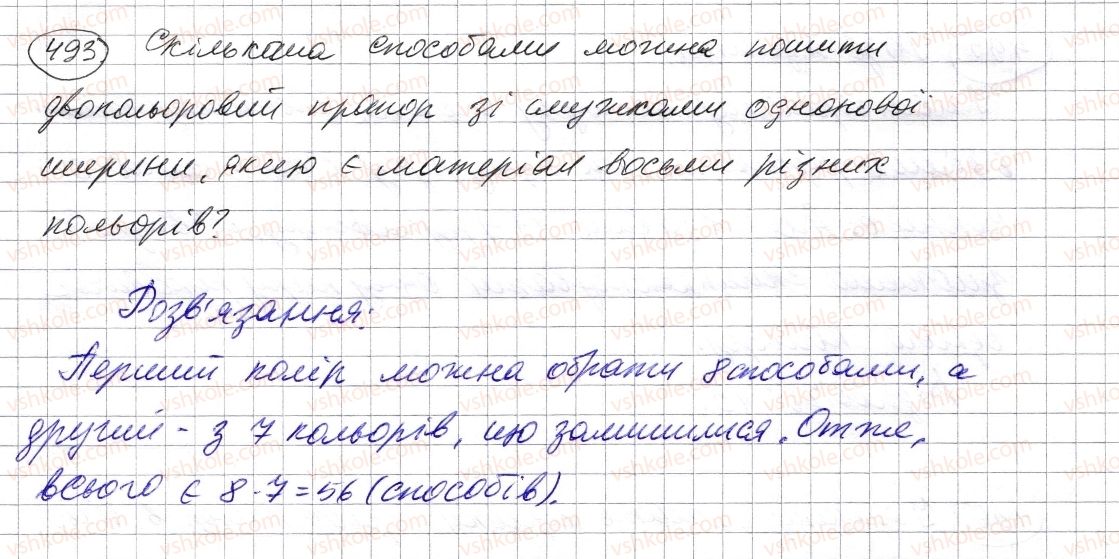 493 Скількома способами можна пошити
двокольоровий прапор зі смужками однакової
ширини, якщо є матеріал восьми різних
кольорів?
Розв'язання:
Перший колір можна обрати 8 способами, а
другий - з 7 кольорів, що залишилися. Отже,
всього є 8·7=56 (способів).